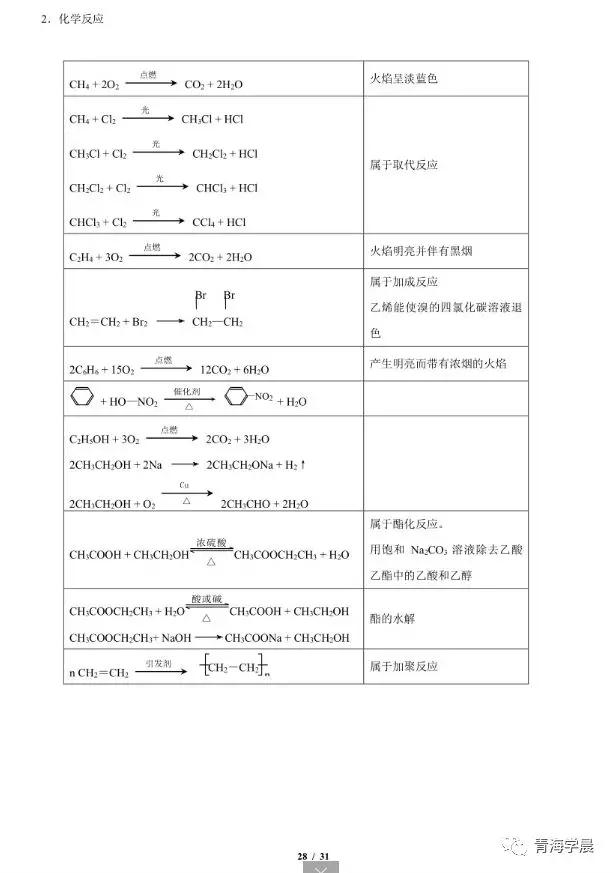 2. 化学反应
CH₄ + 2O₂ 点燃 → CO₂ + 2H₂O
火焰呈淡蓝色
CH₄ + Cl₂ 光 → CH₃Cl + HCl
CH₃Cl + Cl₂ 光 → CH₂Cl₂ + HCl
CH₂Cl₂ + Cl₂ 光 → CHCl₃ + HCl
CHCl₃ + Cl₂ 光 → CCl₄ + HCl
属于取代反应
C₂H₄ + 3O₂ 点燃 → 2CO₂ + 2H₂O
火焰明亮并伴有黑烟
Br Br
CH₂=CH₂ + Br₂ → CH₂—CH₂
属于加成反应
乙烯能使溴的四氯化碳溶液退
色
2C₆H₆ + 15O₂ 点燃 → 12CO₂ + 6H₂O
产生明亮而带有浓烟的火焰
+ HO—NO₂ 催化剂 → △ —NO₂ + H₂O
C₂H₅OH + 3O₂ 点燃 → 2CO₂ + 3H₂O
2CH₃CH₂OH + 2Na → 2CH₃CH₂ONa + H₂↑
2CH₃CH₂OH + O₂ Cu → △ 2CH₃CHO + 2H₂O
CH₃COOH + CH₃CH₂OH 浓硫酸 ⇌ △ CH₃COOCH₂CH₃ + H₂O
属于酯化反应。
用饱和 Na₂CO₃ 溶液除去乙酸
乙酯中的乙酸和乙醇
CH₃COOCH₂CH₃ + H₂O 酸或碱 ⇌ △ CH₃COOH + CH₃CH₂OH
CH₃COOCH₂CH₃+ NaOH → CH₃COONa + CH₃CH₂OH
酯的水解
n CH₂=CH₂ 引发剂 → [CH₂—CH₂]n
属于加聚反应
28 / 31
青海学晨